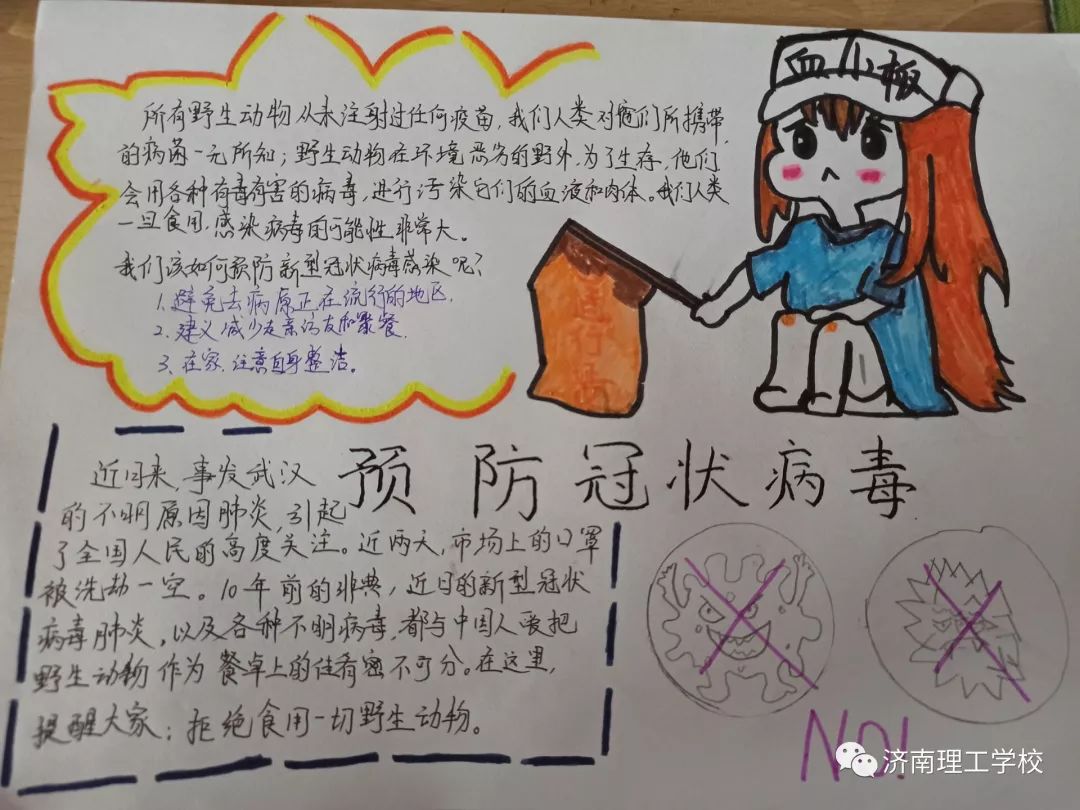 所有野生动物从未注射过任何疫苗,我们人类对它们所携带
的病菌一无所知;野生动物在环境恶劣的野外,为了生存,他们
会用各种有毒有害的病毒,进行污染它们的血液和肉体。我们人类
一旦食用,感染病毒的可能性非常大。
我们该如何预防新型冠状病毒感染呢?
1.避免去病原正在流行的地区.
2.建义减少走亲访友和聚餐.
3、在家,注意自身整洁。
血小板
通行
预防冠状病毒
近日来,事发武汉
的不明原因肺炎,引起
了全国人民的高度关注。近两天,市场上的口罩
被洗劫一空。10年前的非典,近日的新型冠状
病毒肺炎,以及各种不明病毒,都与中国人要把
野生动物作为餐桌上的佳肴密不可分。在这里,
提醒大家:拒绝食用一切野生动物。
NO!
济南理工学校